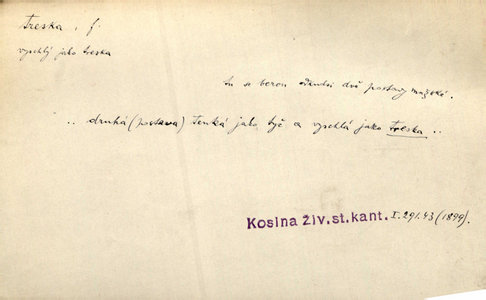 treska, f.
vyschlý jako treska
tu se berou dvě postavy mužské.
.. druhá (postava) tenká jako tyč a vyschlá jako treska ..
Kosina Živ.st.kant. I.291.43 (1899).